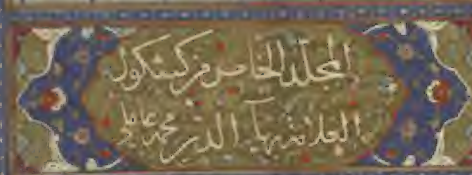 المجلد الخامس من كشكول
العلامة بهاء الدين محمد عاملي